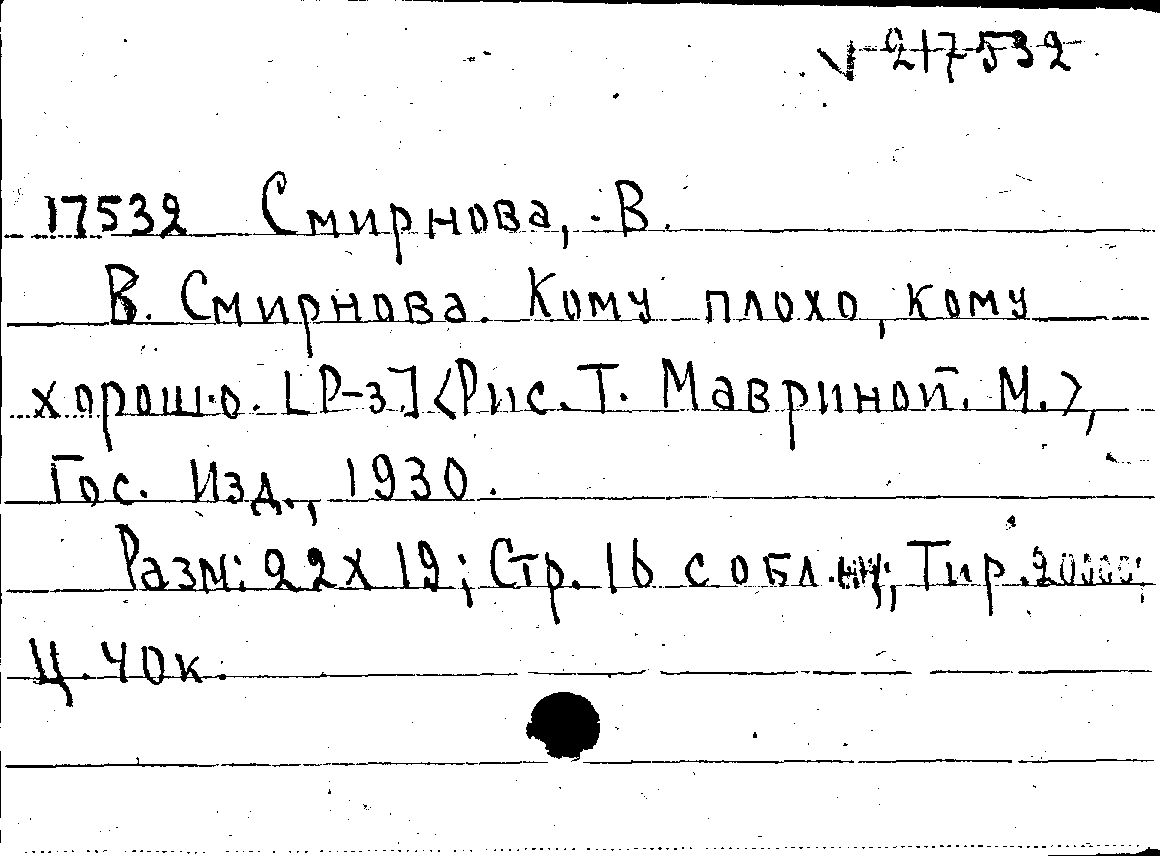 √ 217532
17532 Смирнова, В.
В. Смирнова. Кому плохо, кому
хорошо. [Р-з.] <Рис. Т. Мавриной. М.>,
Гос. Изд., 1930.
Разм: 22х19; Стр. 16 с обл.; Тир. 20000;
Ц. 40к.